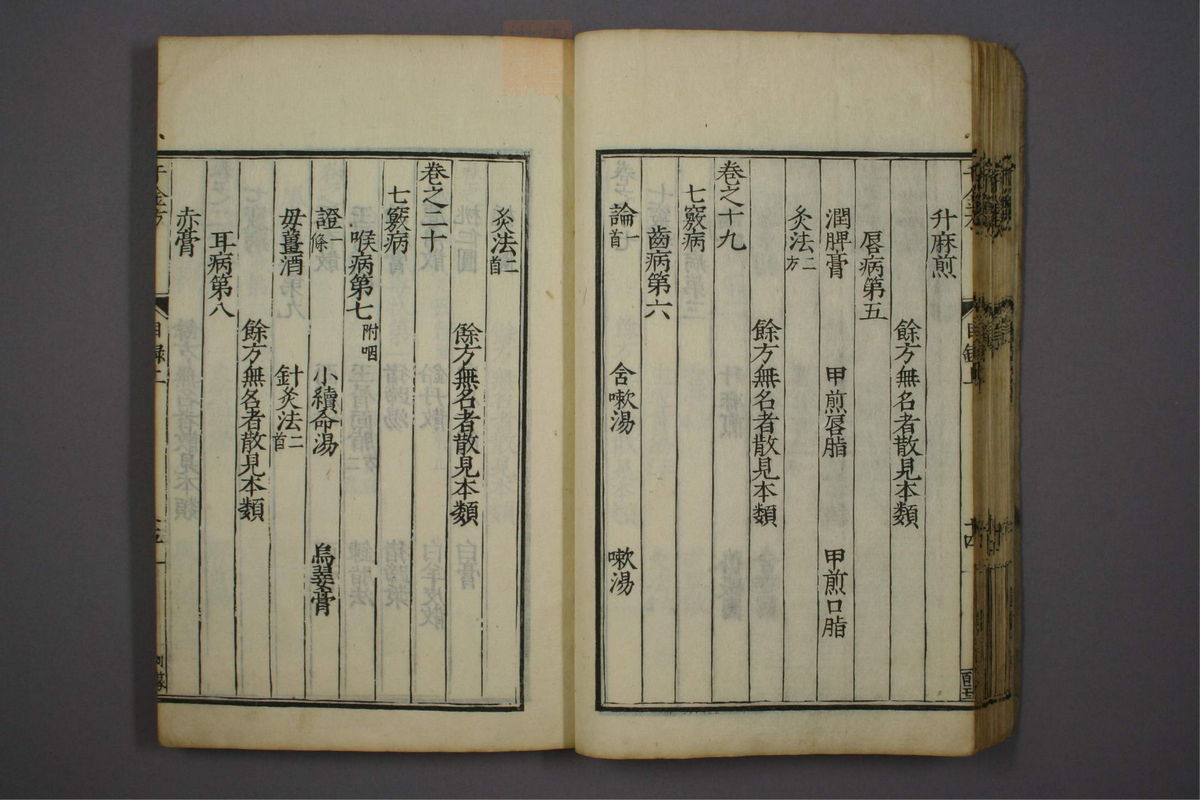 升麻煎
餘方無名者散見本類
唇病第五
潤脾膏 甲煎唇脂 甲煎口脂
灸法二方
餘方無名者散見本類
卷之十九
七竅病
齒病第六
論一首 含嗽湯 嗽湯
灸法二首
餘方無名者散見本類
卷之二十
七竅病
喉病第七附咽
證一條 小續命湯 烏翣膏
母薑酒 針灸法二首
餘方無名者散見本類
耳病第八
赤膏
千金方 目錄二